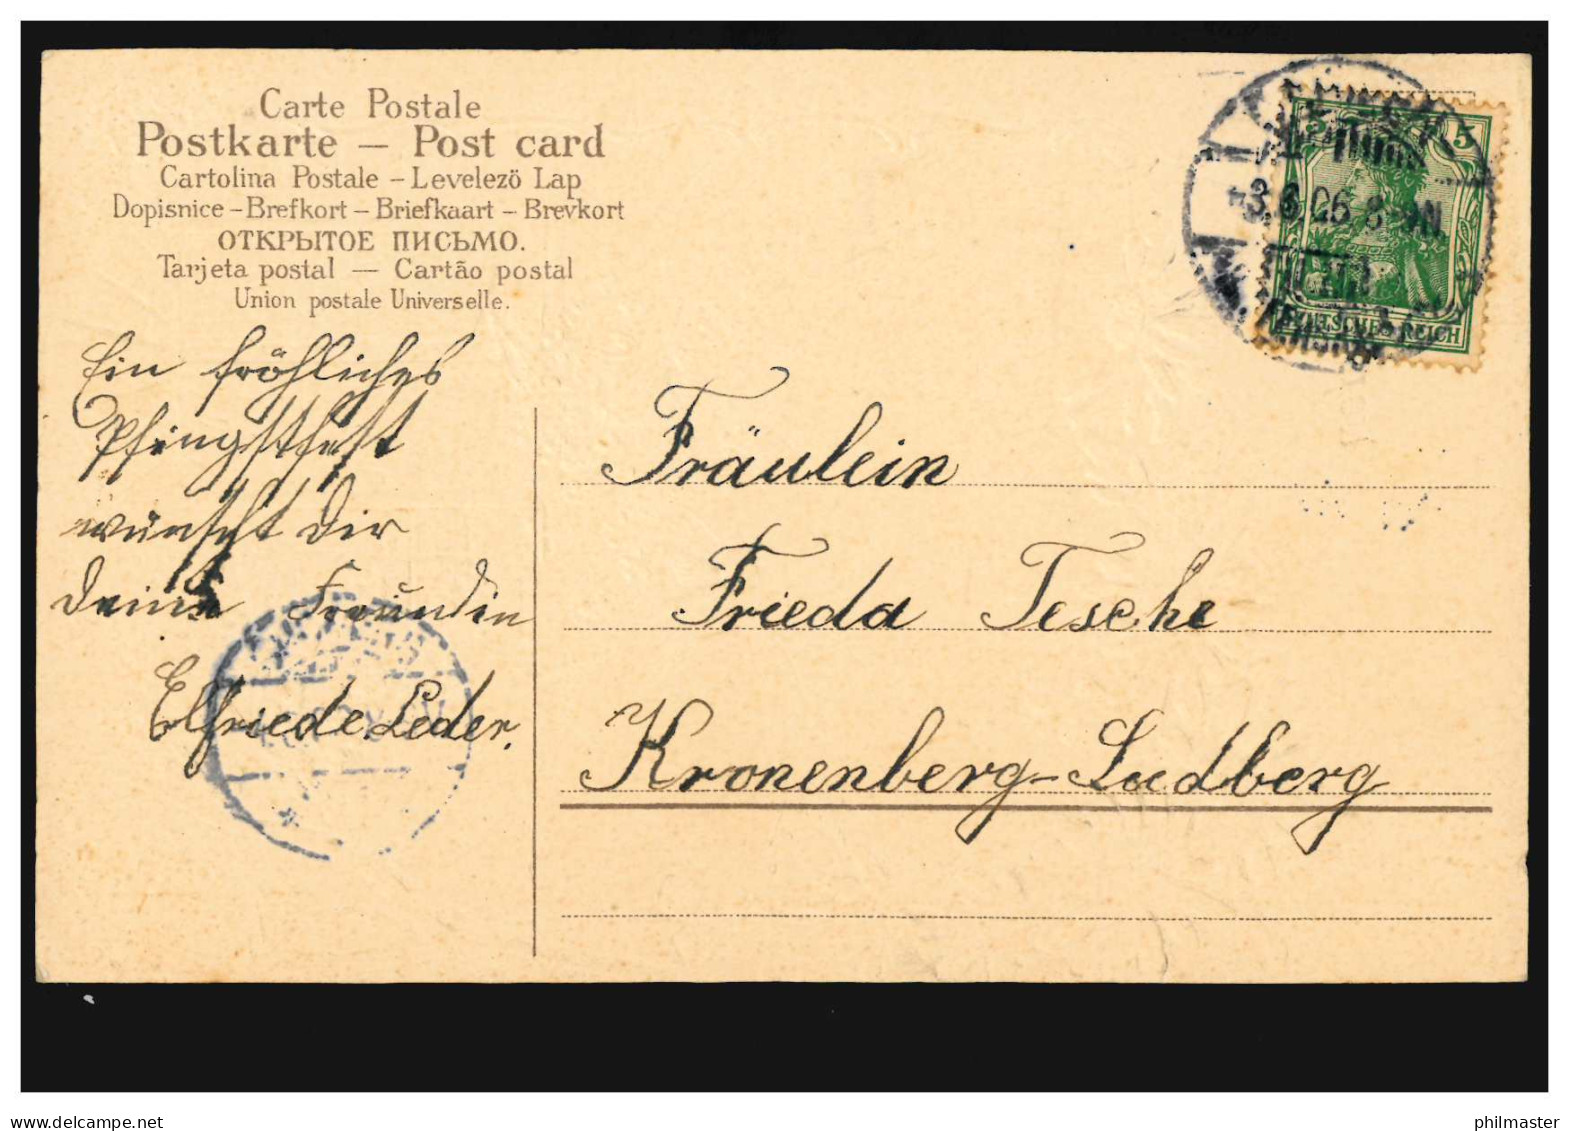 Carte Postale
Postkarte – Post card
Cartolina Postale – Levelezö Lap
Dopisnice – Brefkort – Briefkaart – Brevkort
ОТКРЫТОЕ ПИСЬМО.
Tarjeta postal — Cartão postal
Union postale Universelle.
Ein fröhliches
Pfingstfest
wünscht Dir
Deine Freundin
Elfriede Leder.
5
3.6.06 8-9N.
DEUTSCHES REICH
Fräulein
Frieda Tesche
Kronenberg-Sudberg
delcampe.net
philmaster